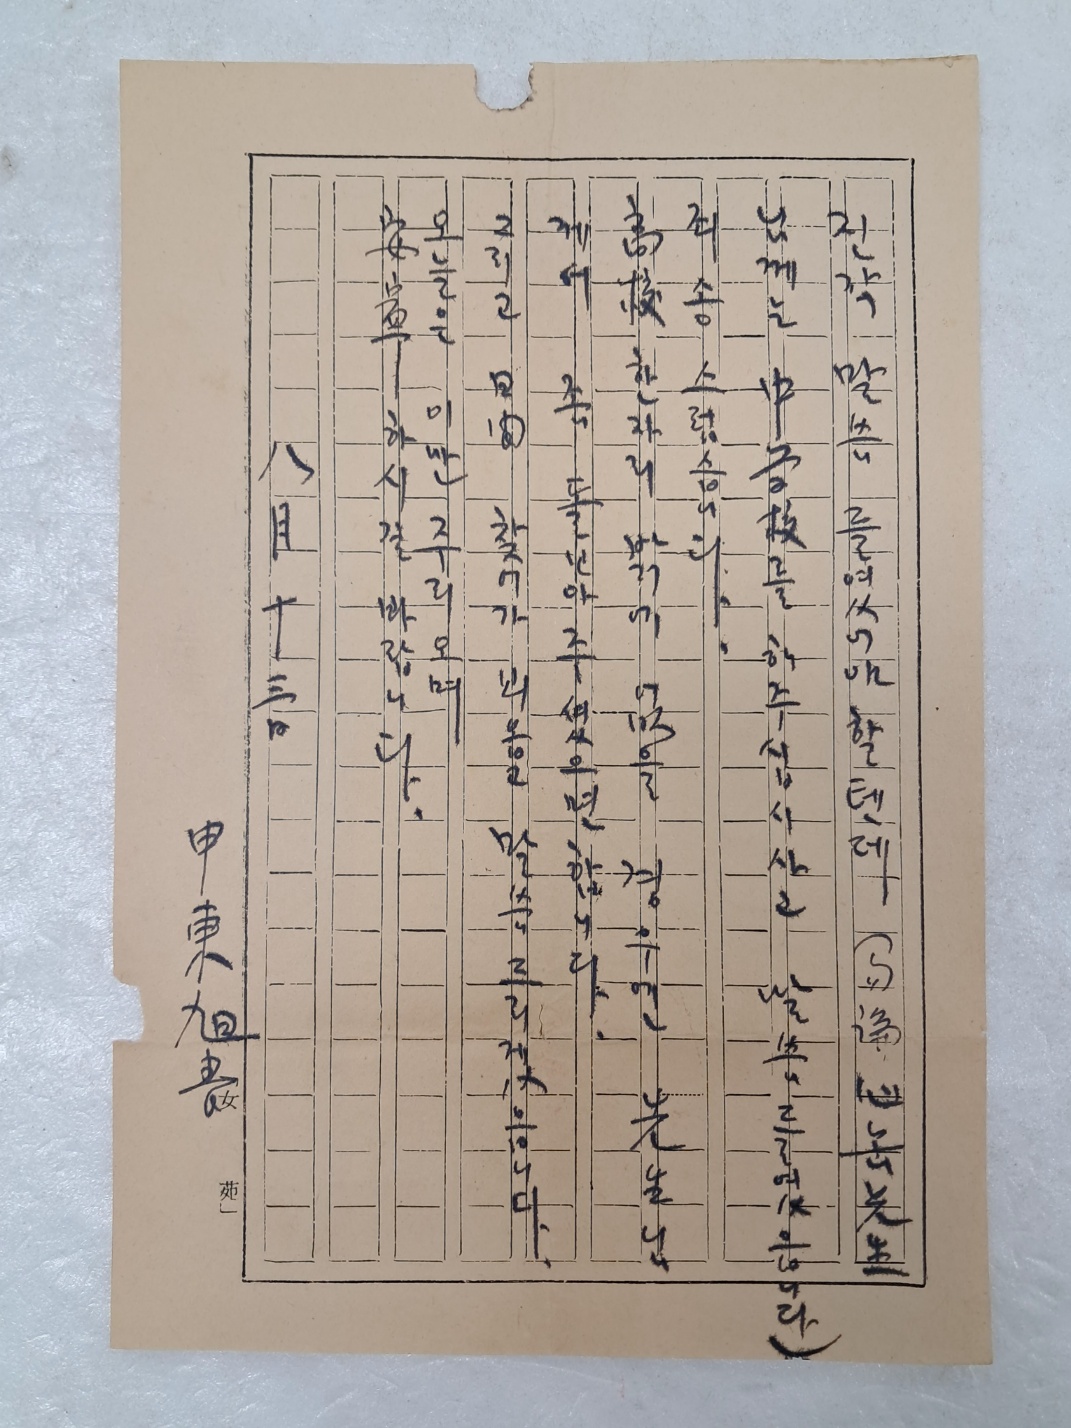 진작 말씀 들였서야 할텐데 (同論 主幹先生
님께는 中高校를 하주십사 사고 말씀 드렸읍니다)
죄송스럽습니다.
高校 한자리 밝기 있을 경우엔 先生님
께서 좀 돌보아 주셨으면 합니다.
그리고 자리가 되옵고 말씀 드리겠읍니다.
오늘은 이만 주리오며
安寧하시길 바랍니다.
八月十三日
申東旭書
女苑